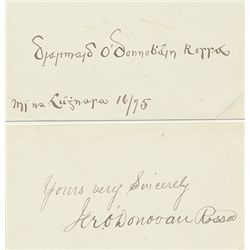 Diarmaid O'Donnobáin Rossa
Mí na Lúghnasa 16/95
Yours very Sincerely
Jer O'Donovan Rossa